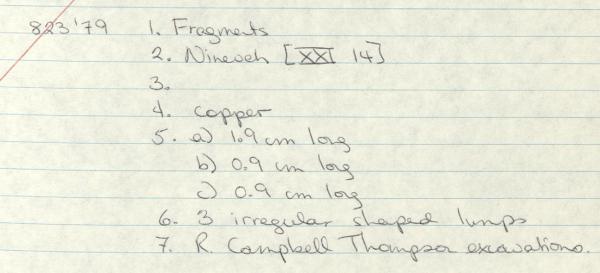 823'79 1. Fragments
2. Nineveh [XXI 14]
3.
4. copper
5. a) 1.9 cm long
b) 0.9 cm long
c) 0.9 cm long
6. 3 irregular shaped lumps
7. R. Campbell Thompson excavations.